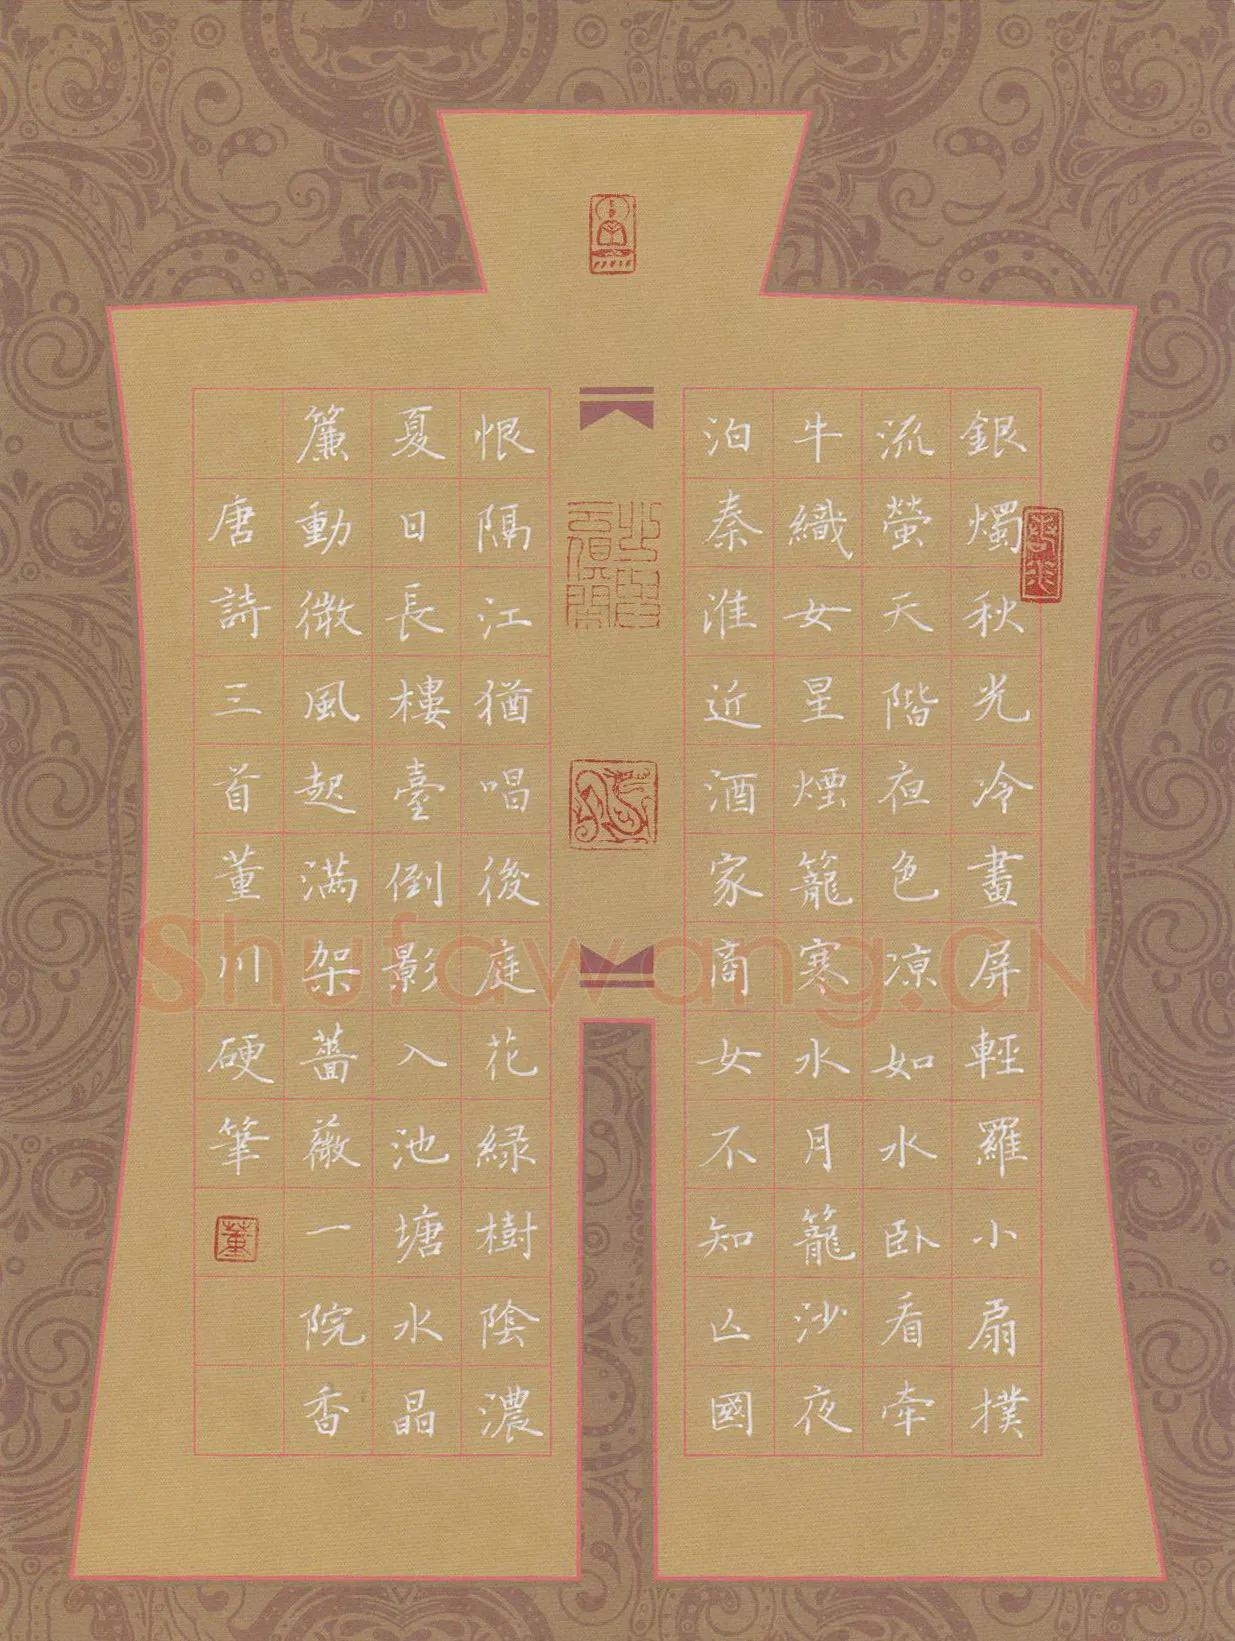 銀燭秋光冷畫屏輕羅小扇撲
流螢天階夜色凉如水卧看牽
牛織女星煙籠寒水月籠沙夜
泊秦淮近酒家商女不知亡國
恨隔江猶唱後庭花緑樹陰濃
夏日長樓臺倒影入池塘水晶
簾動微風起满架薔薇一院香
唐詩三首董川硬筆
董
Shufawang.CN